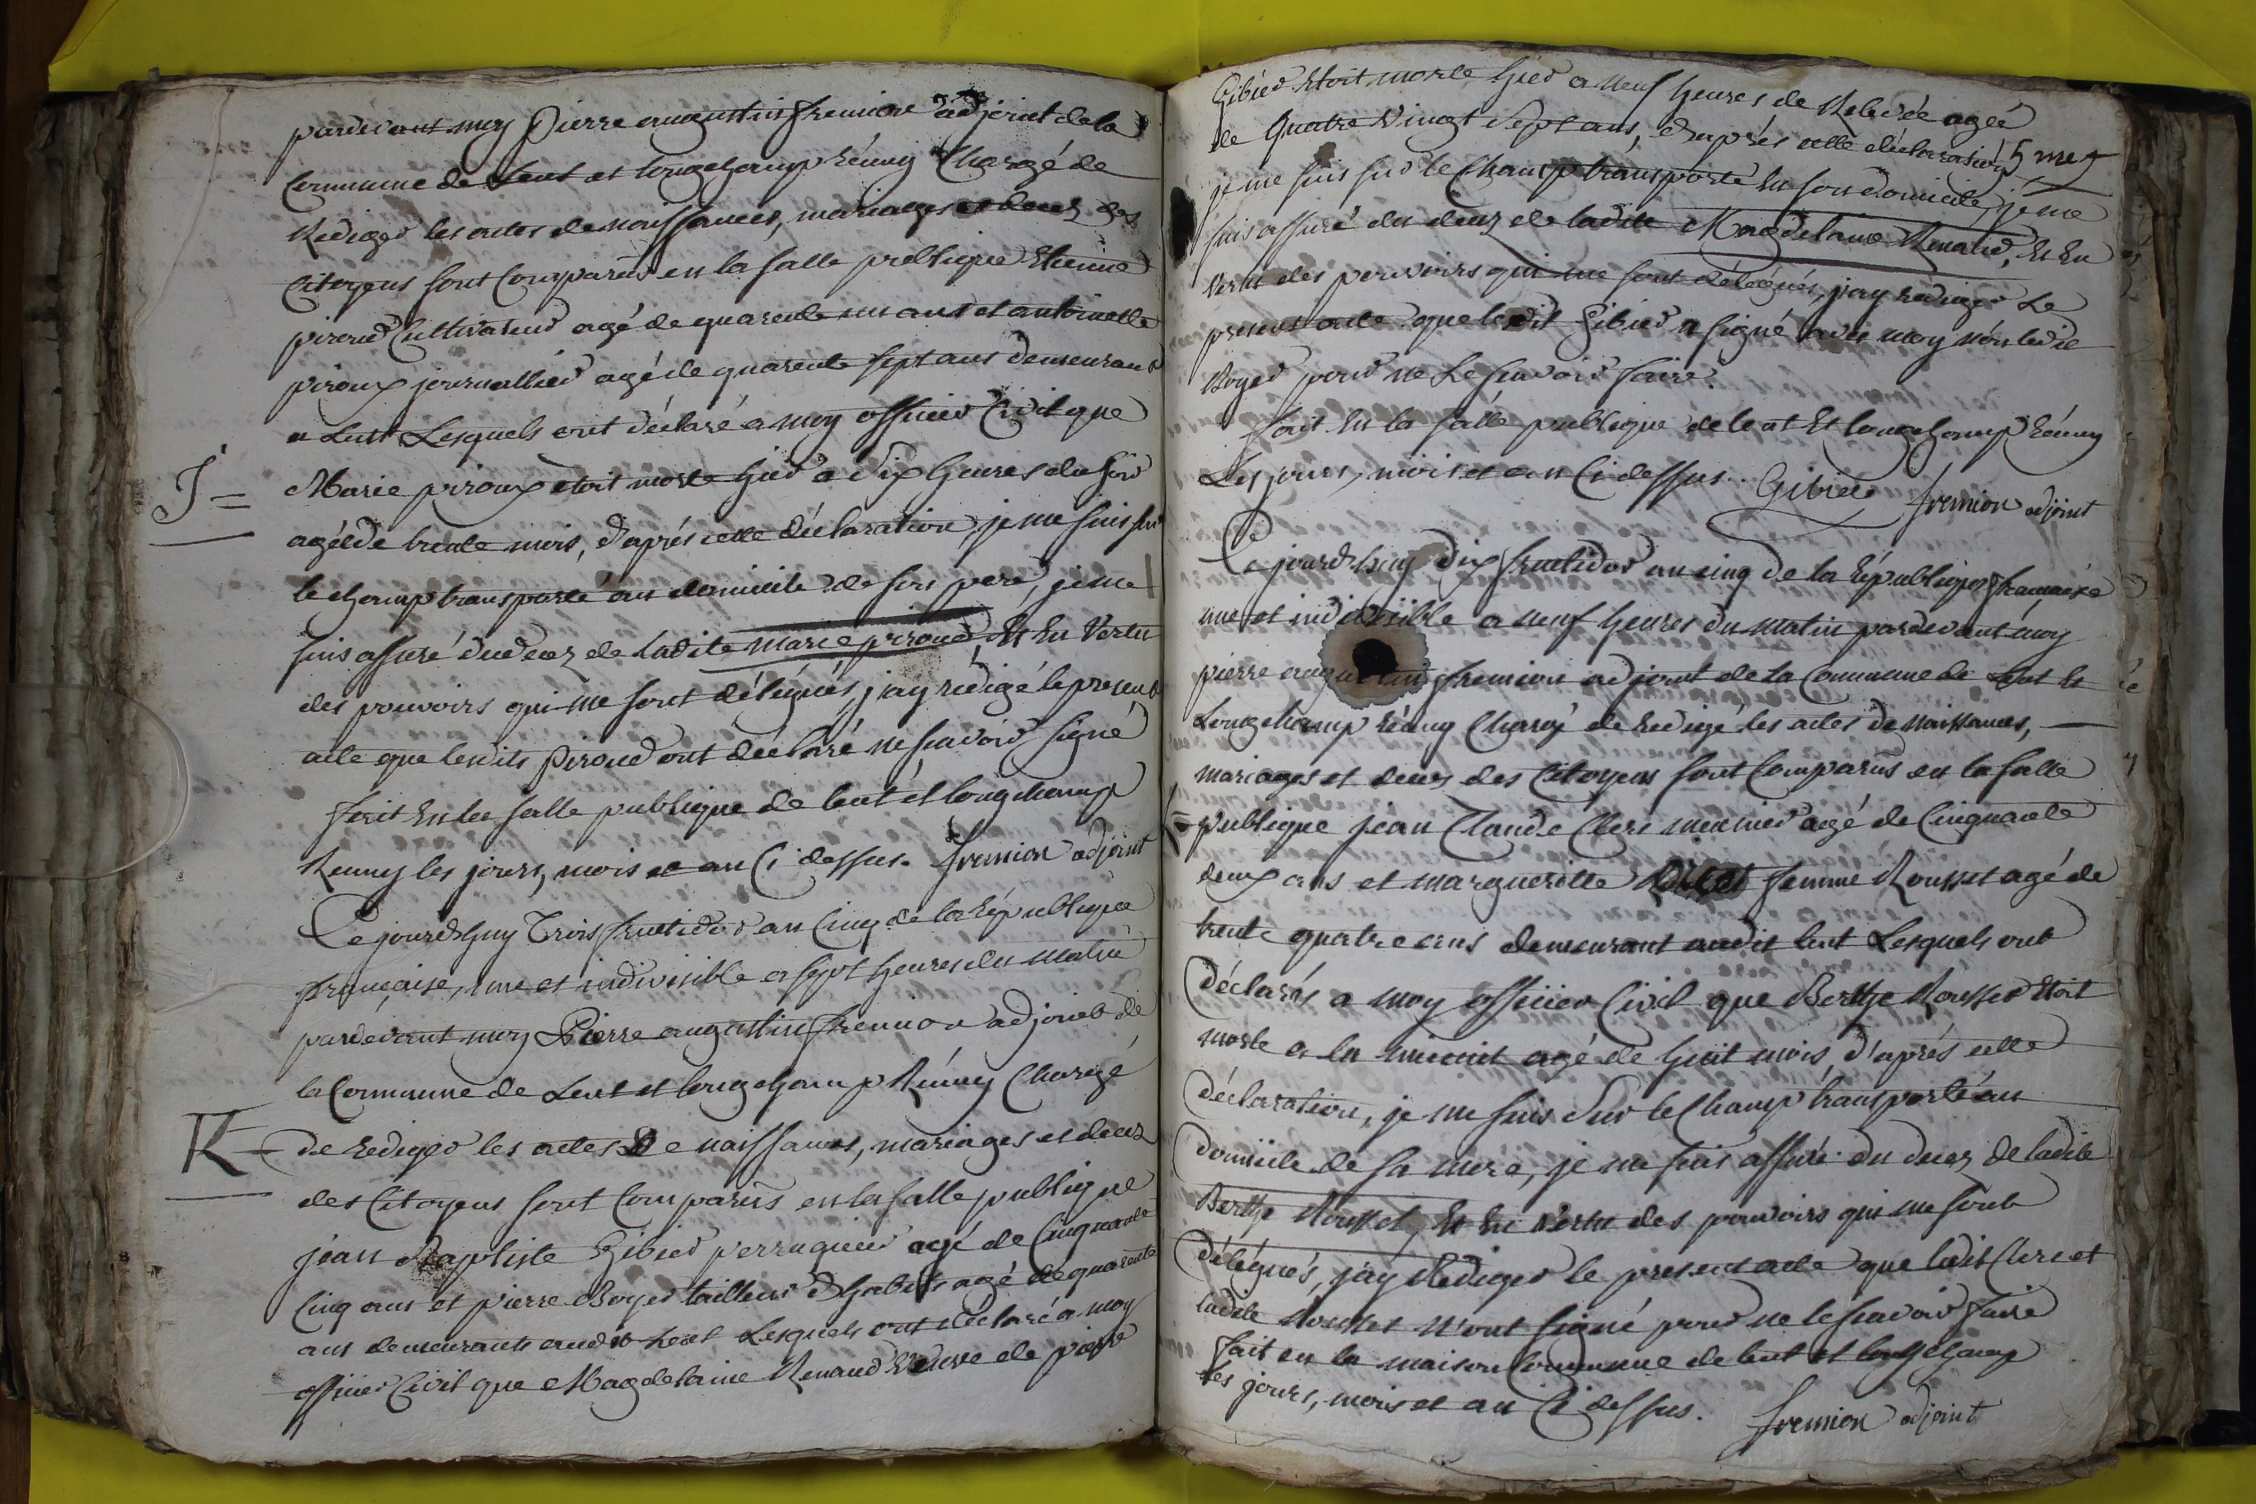 pardevant moy Pierre augustin fremion adjoint de la
Commune de Lent et longchamp réuny Chargé de
Rediger les actes de naissances, mariages et decez des
Citoyens sont Comparûs en la salle publique Etienne
piroud Cultivateur agé de quarente un ans et antoinette
piroux journallier agé de quarente sept ans demeurant
a Lent Lesquels ont déclaré a moy officier Civil que
J =
Marie piroux etoit morte hier a dix heures du soir
agéé de trente mois, d'aprés cette déclaration, je me suis sur
le champ transporté au domicile de son pere, je me
suis assuré du decez de ladite marie piroud, Et En Vertu
des pouvoirs qui me sont délegués, j'ay rédigé le present
acte que lesdits piroud ont déclaré ne scavoir signé
fait En la salle publique de lent et longchamp
Reuny les jours, mois et an Ci dessus. fremion adjoint
Ce jourdhuy Trois fructidor an Cinq de la République
française, une et indivisible a sept heures du matin
pardevant moy Pierre augustin fremion adjoint de
la Commune de Lent et longchamp Réuny Chargé
K =
de rediger les actes De naissances, mariages et decez
des Citoyens sont Comparûs en la salle publique
jean Baptiste Gibier perruquier agé de Cinquante
Cinq ans et pierre Boyer tailleur d'habits agé de quarente
ans demeurants audit Lent Lesquels ont déclaré a moy
officier Civil que Magdelaine Renaud Veuve de pierre
Gibier Etoit morte hier a neuf heures de Relevée agéé
de Quatre Vingt Sept ans, d'aprés cette déclaration
je me suis sur le Champ transporté En son domicile, je me
suis assuré du decez de ladite Magdelaine Renaud, Et En
Vertu des pouvoirs qui me sont délegués, j'ay rediger Le
present acte que ledit Gibier a signé avec moy non ledit
Boyer pour ne Le scavoir faire.
fait En la salle publique de lent Et longchamp Réuny
Les jours, mois et an Ci dessus. Gibier fremion adjoint
Ce jourdhuy dix fructidor an cinq de la République française
une et indivisible a neuf heures du matin pardevant moy
pierre augustin fremion adjoint de la Commune de Lent Et
Longchamp Réuny Chargé de Redigé les actes de naissances,
mariages et decez des Citoyens sont Comparus en la salle
publique jean Claude Clerc meunier agé de Cinquante
deux ans et marguerite femme Rousset agé de
trente quatre ans demeurant audit lent Lesquels ont
déclarés a moy officier Civil que Berthe Rousset Etoit
morte a la minuit agé de huit mois, d'aprés cette
déclaration, je me suis Sur le Champ transporté au
domicile de sa mere, je me suis assuré du decez de ladite
Berthe Rousset, Et En Vertu des pouvoirs qui me sont
délégués, j'ay Rediger le present acte que ledit Clerc et
ladite Rousset n'ont signé pour ne le scavoir faire
fait en la maison Commune de lent et longchamp
les jours, mois et an Ci dessus. fremion adjoint